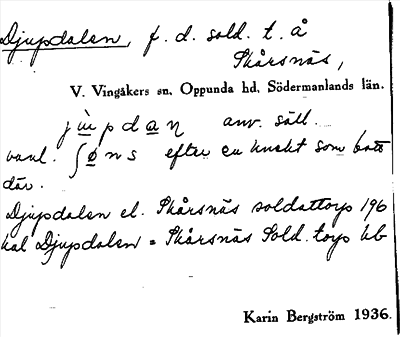 Djupdalen, f. d. sold. t. å
Skårsnäs,
V. Vingåkers sn, Oppunda hd, Södermanlands län.
jùpdaƞ anv. säll.
vanl. ʃøns efter en knekt som bott
där.
Djupdalen el. Skårsnäs soldattorp 196
kal Djupdalen = Skårsnäs Sold. torp hb
Karin Bergström 1936.